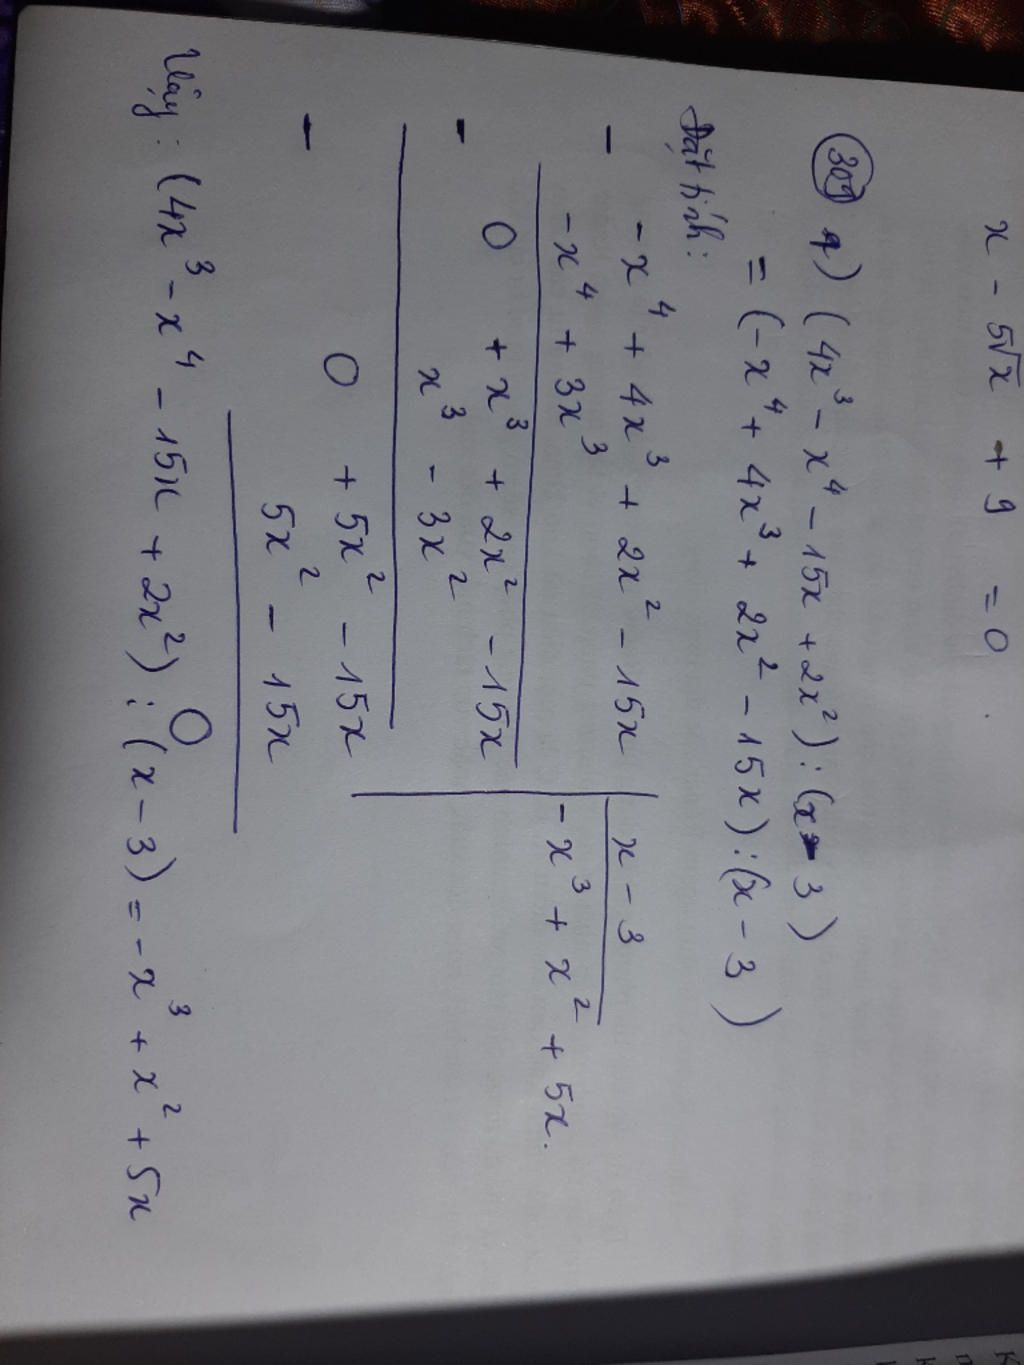 x - 5√x + 9 = 0
a) (4x³ - x⁴ - 15x + 2x²) : (x - 3)
= (-x⁴ + 4x³ + 2x² - 15x) : (x - 3)
Đặt tính:
- -x⁴ + 4x³ + 2x² - 15x | x - 3
-x⁴ + 3x³ | -x³ + x² + 5x.
- 0 + x³ + 2x² - 15x
x³ - 3x²
- 0 + 5x² - 15x
5x² - 15x
0
Vậy : (4x³ - x⁴ - 15x + 2x²) : (x - 3) = -x³ + x² + 5x